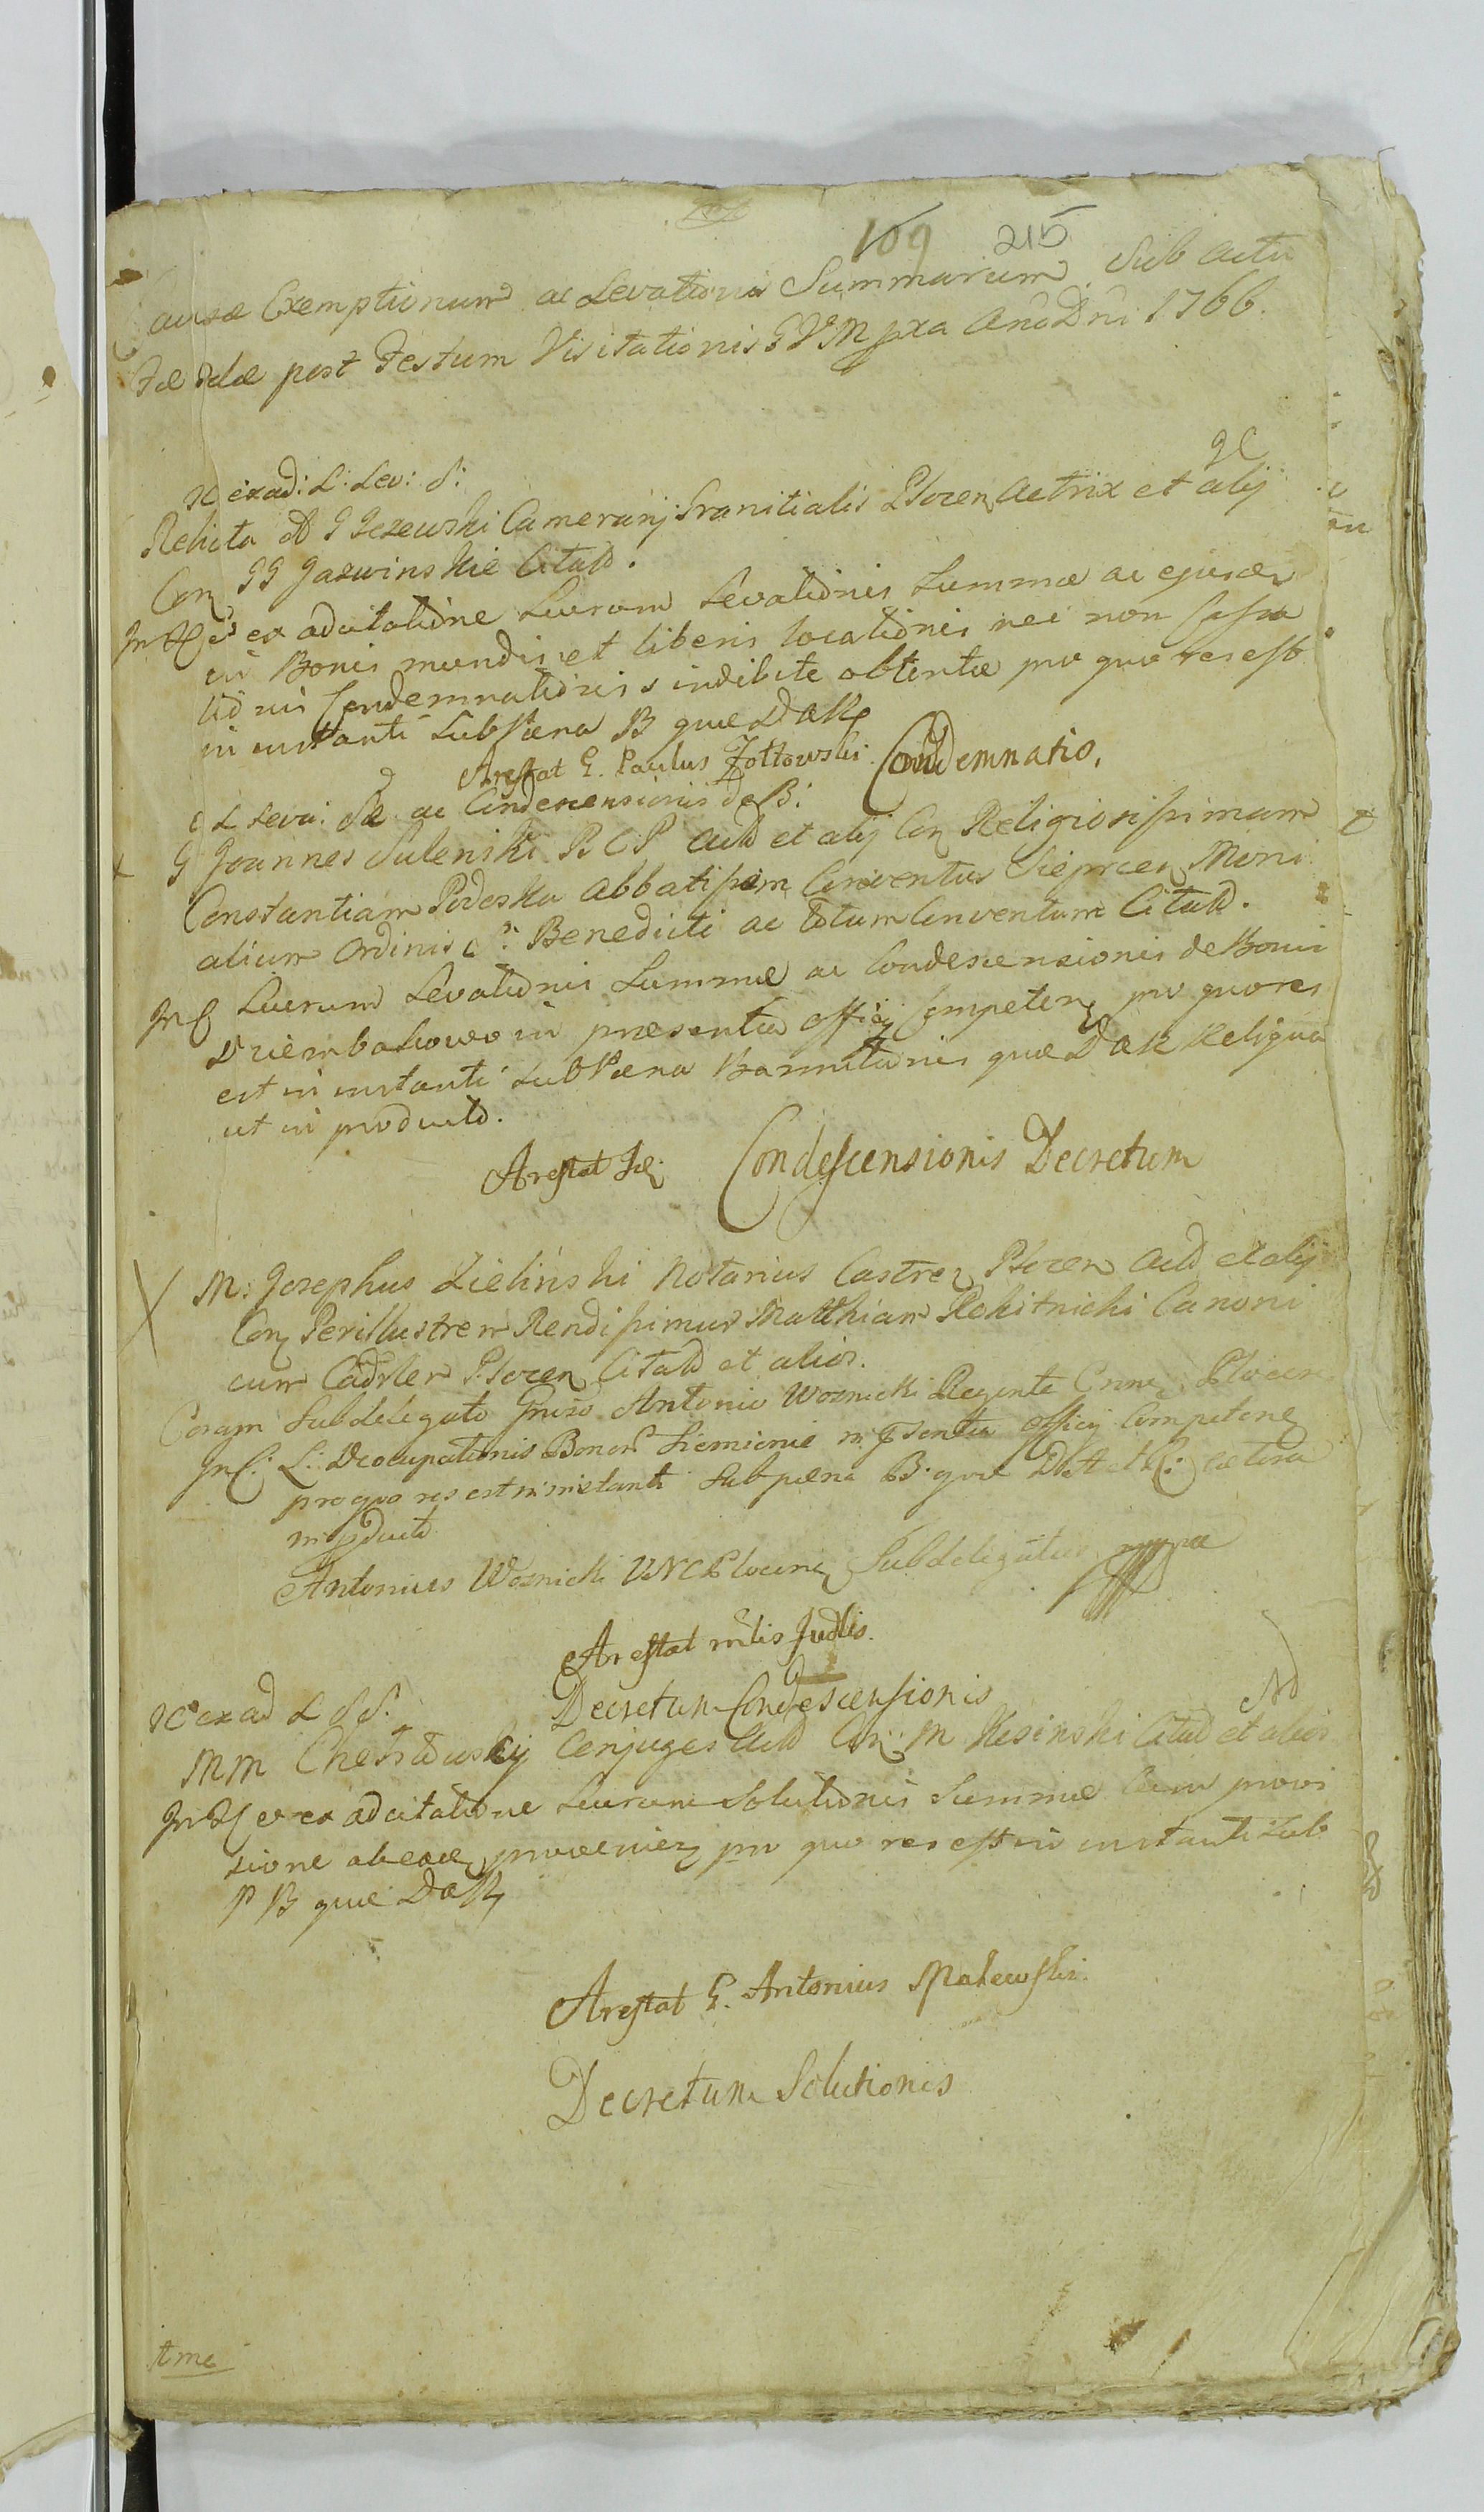 109 215
Causae Exemptionum ac Levationis Summarum Sub actu
Fae 2dae post Festum Visitationis BVM pxa Ano Dni 1766.
9C
Rc ex ad: L: Lev: S:
Relicta G Jezewski Camerarij Granitialis Plocen Actrix et alij
Con GG Garwinskie Citato.
In Rc ex adcitatione Lucrorum Levationis Summae ac ejusdem
in Bonis mundis et liberis locationis nec non Cassa
tionis Condemnationis indebite obtentae pro quo res est
in instanti Sub Paena B quae DaRp
Arestat G. Paulus Zołtowski Condemnatio.
C L Leva: Sae ac Condescensionis de B:
G Joannes Sulenski R C P Acto et alij Con Religiosissimam
Constantiam Podoska Abbatissam Conventus Sieprcen Moni
alium Ordinis S: Benedicti ac totum Conventum Citato.
In C Lucrorum Levationis Summae ac Condescensionis de Bonis
Dziembakowo in praesentia Officij Competen pro quo res
est in instanti Sub Paena Bannitionis quae DaR Reliqua
ut in producto.
Arestat Id: Condescensionis Decretum
M: Josephus Zielinski Notarius Castren Plocen Acto et alij
Con Perillustrem Rendissimum Matthiam Rokitnicki Canoni
cum Cadrlem Plocen Citato et alios.
Coram Subdelegato Gnroso Antonio Woznicki Regente Crinen Plocen
In C: L: Deoccupationis Bonor Siemienie in psentia Officij Competen
pro quo res est in instanti Sub paena B: quae DaR: caetera
in pducto
Antonius Woznicki VNC Plocen Subdelegatus mppa
Arestat mlis Judlis.
Decretum Condescensionis
Rc ex ad L S S.
MM Chełstowskij Conjuges Acto Con: M Kesinski Citato et alios
In Rc ex adcitatione Lucrorum Solutionis Summae cum provi
sione ab eadem provenien pro quo res est in instanti Sub
P B quae DaR
Arestat G. Antonius Makowski.
Decretum Solutionis
tme